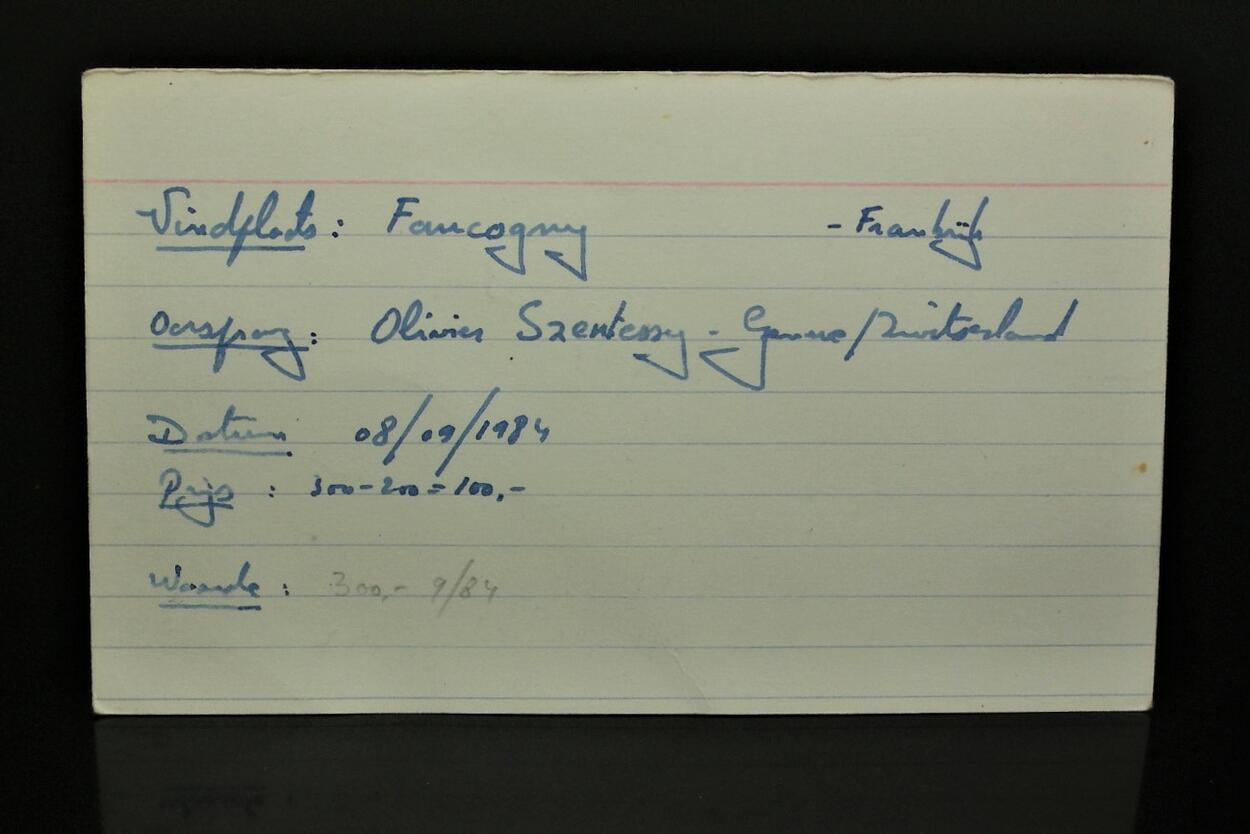 Vindplaats: Faucogny - Frankrijk
Oorsprong: Olivier Szentessy - Geneve/Zwitserland
Datum 08/09/1984
Prijs : 300-200=100,-
Waarde : 300,- 9/84